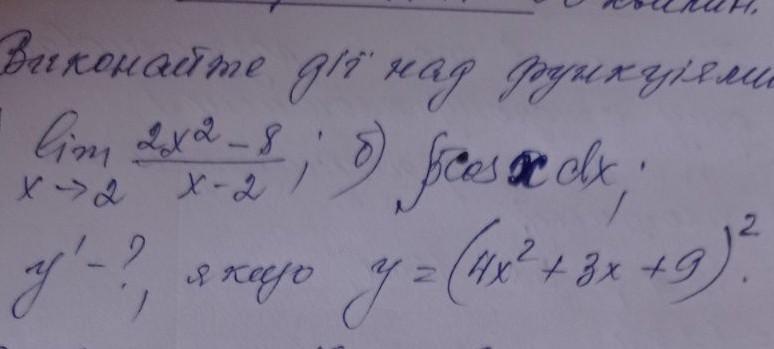 Виконайте дії над функціями
lim x→2 (2x²-8)/(x-2); б) ∫5cos x dx;
y'-?, якщо y=(4x²+3x+9)².